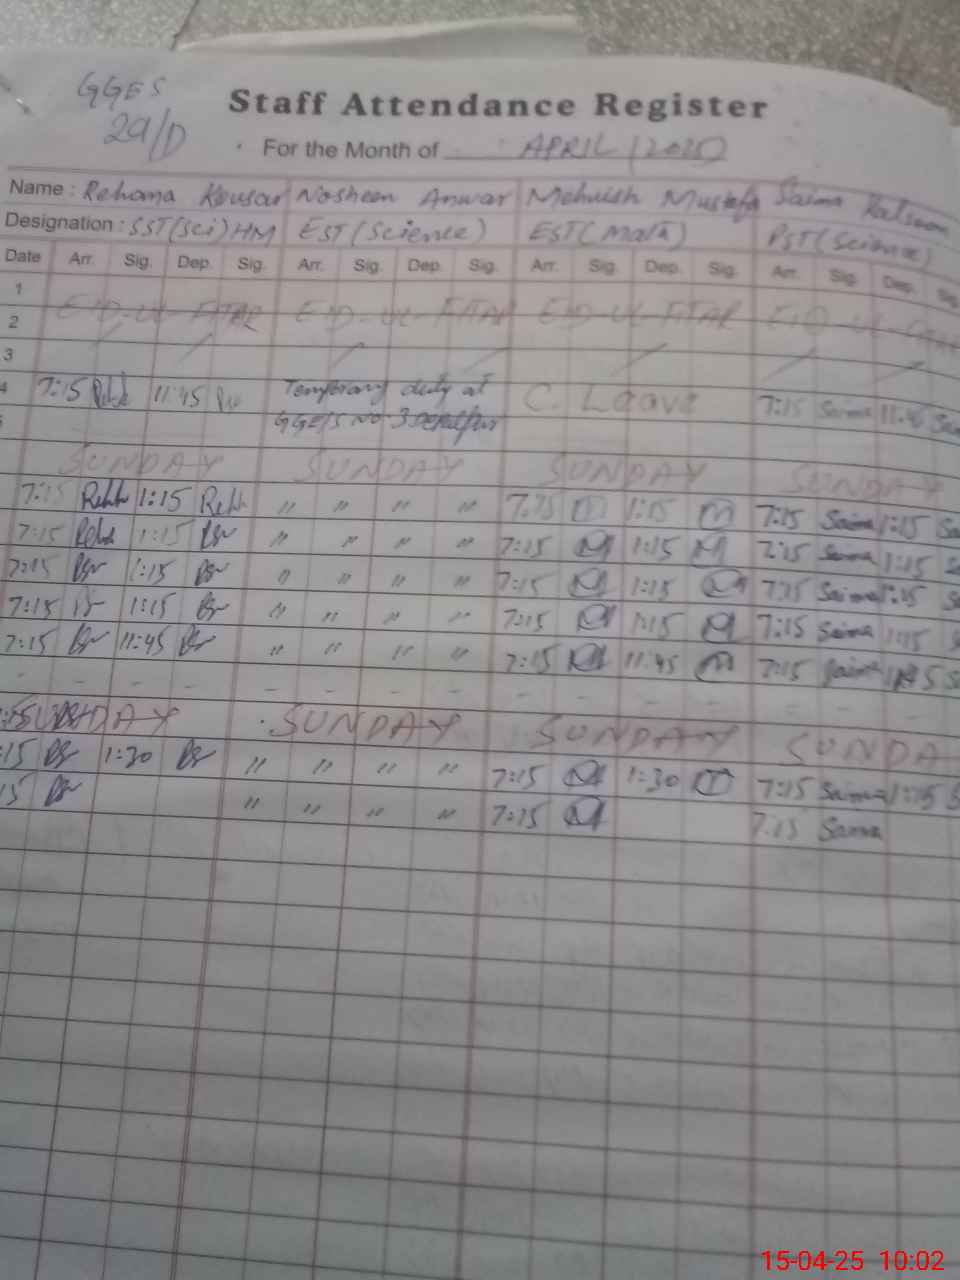 GGES
29/D
Staff Attendance Register
For the Month of APRIL (2025)
Name : Rehana Kousar Nosheen Anwar Mehwish Mustafa Saima Kalsoom
Designation : SST(Sci)HM EST(Science) EST(Math) PST(Science)
Date Arr. Sig. Dep. Sig. Arr. Sig. Dep. Sig. Arr. Sig. Dep. Sig. Arr. Sig. Dep. Sig
1
EID-UL-FITAR EID-UL-FITAR EID-UL-FITAR EID-UL-
2
3
4 7:15 11:45 Temporary duty at C. Leave 7:15 Saima 11:45 Sa
GGE/S No 3
SUNDAY SUNDAY SUNDAY SUNDAY
7:15 Reh 1:15 Reh " " " " 7:15 M 1:15 M 7:15 Saima 1:15 Sa
7:15 Reh 1:15 " " " " 7:15 M 1:15 M 7:15 Saima 1:15 S
7:15 1:15 " " " " 7:15 M 1:15 M 7:15 Saima 1:15 S
7:15 1:15 " " " " 7:15 M 1:15 M 7:15 Saima 1:15 S
7:15 11:45 " " " " 7:15 M 11:45 M 7:15 Saima 11:45 S
- - - - - - - - - - - -
SUNDAY SUNDAY SUNDAY SUNDA
:15 1:30 " " " " 7:15 M 1:30 M 7:15 Saima 1:15 S
15 " " " " 7:15 M 7:15 Saima
15-04-25 10:02